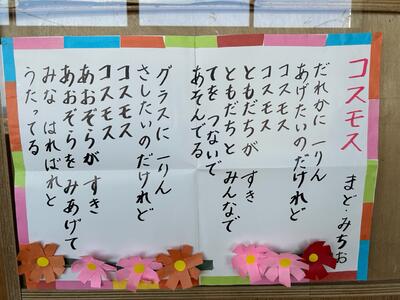 コスモス
まど・みちお
だれかに 一りん
あげたいのだけれど
コスモス
コスモス
ともだちが すき
ともだちと みんなで
てを つないで
あそんでる
グラスに 一りん
さしたいのだけれど
コスモス
コスモス
あおぞらが すき
あおぞらを みあげて
みな はればれと
うたってる